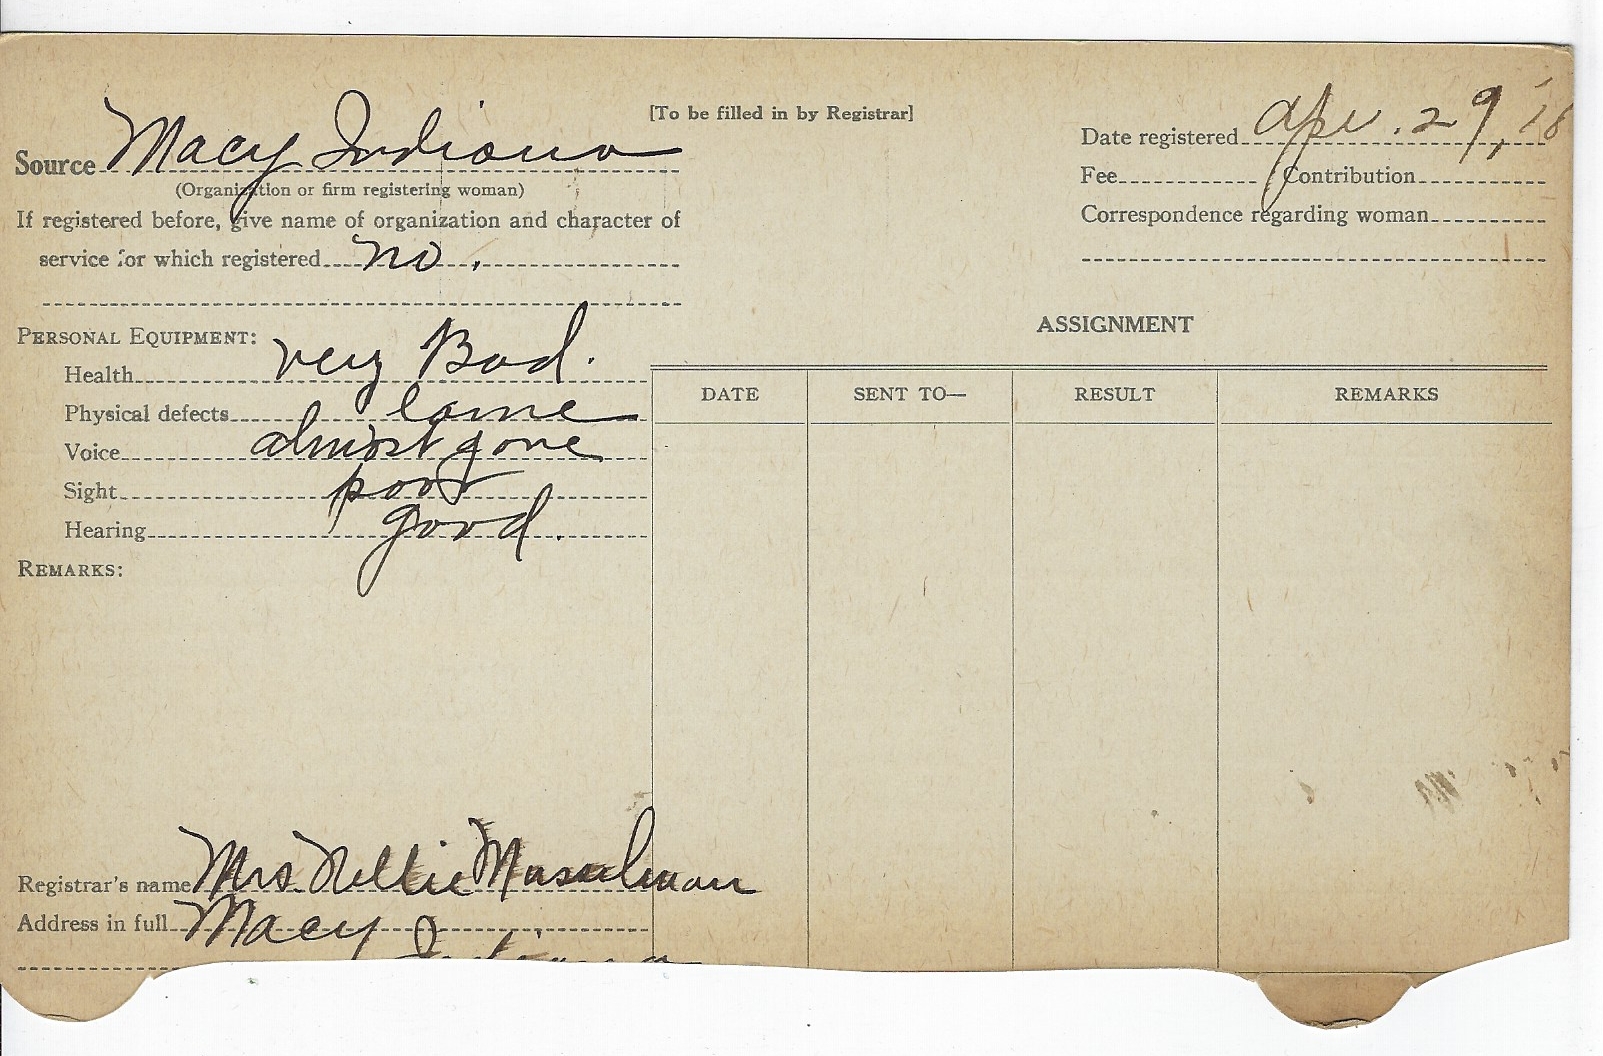 [To be filled in by Registrar]
Source Macy Indiana
(Organization or firm registering woman)
If registered before, give name of organization and character of
service for which registered no.
PERSONAL EQUIPMENT:
Health very Bad.
Physical defects lame
Voice almost gone
Sight poor
Hearing good.
REMARKS:
Registrar's name Mrs. Nellie Musselman
Address in full Macy
Indiana
Date registered Apr. 29, '18
Fee Contribution
Correspondence regarding woman
ASSIGNMENT
DATE SENT TO— RESULT REMARKS